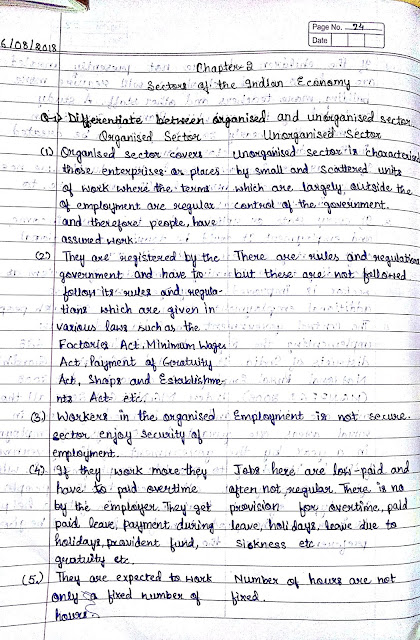 Page No. 24
Date
6/08/2018
Chapter-2
Sectors of the Indian Economy
Q-1) Differentiate between organised and unorganised sector
Organised Sector Unorganised Sector
(1) Organised sector covers unorganised sector is characterised
those enterprises or places by small and scattered units
of work where the terms which are largely outside the
of employment are regular control of the government.
and therefore people, have
assured work.
(2) They are registered by the There are rules and regulations
government and have to but these are not followed
follow its rules and regula-
tions which are given in
various laws such as the
Factories Act, Minimum Wages
Act, Payment of Goratuity
Act, Shops and Establishme-
nts Act etc.
(3) Workers in the organised Employment is not secure.
sector enjoy security of
employment.
(4) If they work more they Jobs here are low-paid and
have to paid overtime often not regular. There is no
by the employer. They get provision for overtime, paid
paid leave, payment during leave, holidays, leave due to
holidays, provident fund, sickness etc
gratuity etc.
(5.) They are expected to work Number of hours are not
only a fixed number of fixed.
hours.